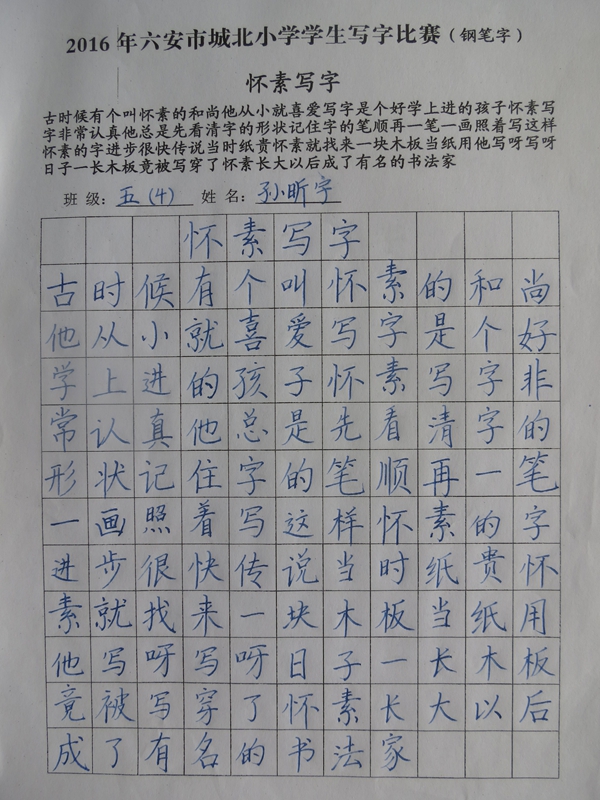 2016年六安市城北小学学生写字比赛(钢笔字)
怀素写字
古时候有个叫怀素的和尚他从小就喜爱写字是个好学上进的孩子怀素写
字非常认真他总是先看清字的形状记住字的笔顺再一笔一画照着写这样
怀素的字进步很快传说当时纸贵怀素就找来一块木板当纸用他写呀写呀
日子一长木板竟被写穿了怀素长大以后成了有名的书法家
班级:五(4) 姓名:孙昕宇
怀素写字
古时候有个叫怀素的和尚
他从小就喜爱写字是个好
学上进的孩子怀素写字非
常认真他总是先看清字的
形状记住字的笔顺再一笔
一画照着写这样怀素的字
进步很快传说当时纸贵怀
素就找来一块木板当纸用
他写呀写呀日子一长木板
竟被写穿了怀素长大以后
成了有名的书法家